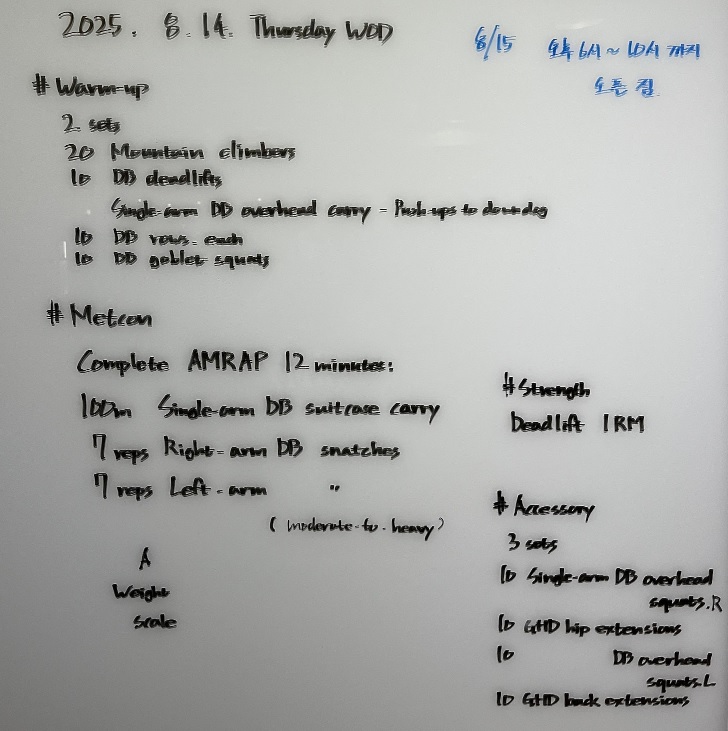 2025. 8. 14. Thursday WOD
8/15 오후 6시 ~ 10시 까지
오픈 짐
# Warm-up
2 sets
20 Mountain climbers
10 DB deadlifts
Single-arm DB overhead carry - Push-ups to downdog
10 DB rows. each
10 DB goblet squats
# Metcon
Complete AMRAP 12 minutes:
100m Single-arm DB suitcase carry
7 reps Right-arm DB snatches
7 reps Left-arm "
(moderate-to-heavy)
A
Weight
Scale
# Strength
Deadlift 1RM
# Accessory
3 sets
10 Single-arm DB overhead
squats.R
10 GHD hip extensions
10 DB overhead
squats.L
10 GHD back extensions